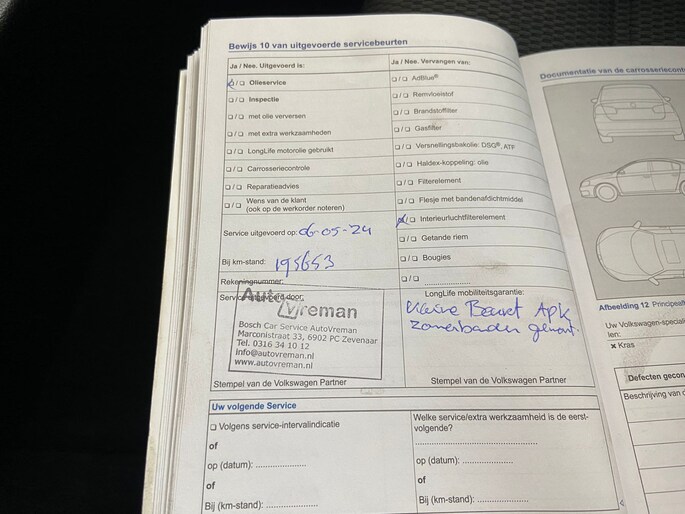 Bewijs 10 van uitgevoerde servicebeurten
Ja / Nee. Uitgevoerd is:
☒/☐ Olieservice
☐/☐ Inspectie
☐/☐ met olie verversen
☐/☐ met extra werkzaamheden
☐/☐ LongLife motorolie gebruikt
☐/☐ Carrosseriecontrole
☐/☐ Reparatieadvies
☐/☐ Wens van de klant
(ook op de werkorder noteren)
Service uitgevoerd op: 06-05-24
Bij km-stand: 195653
Rekeningnummer:
Service uitgevoerd door:
Auto Vreman
Bosch Car Service AutoVreman
Marconistraat 33, 6902 PC Zevenaar
Tel. 0316 34 10 12
info@autovreman.nl
www.autovreman.nl
Stempel van de Volkswagen Partner
Ja / Nee. Vervangen van:
☐/☐ AdBlue®
☐/☐ Remvloeistof
☐/☐ Brandstoffilter
☐/☐ Gasfilter
☐/☐ Versnellingsbakolie: DSG®, ATF
☐/☐ Haldex-koppeling: olie
☐/☐ Filterelement
☐/☐ Flesje met bandenafdichtmiddel
☒/☐ Interieurluchtfilterelement
☐/☐ Getande riem
☐/☐ Bougies
☐/☐ ........................
LongLife mobiliteitsgarantie:
Kleine Beurt APK
zomerbanden gemont.
Stempel van de Volkswagen Partner
Uw volgende Service
☐ Volgens service-intervalindicatie
of
op (datum): ....................
of
Bij (km-stand): ....................
Welke service/extra werkzaamheid is de eerst-
volgende?
........................................
op (datum): ....................
of
Bij (km-stand): ....................
Documentatie van de carrosseriecont
Afbeelding 12 Principeaf
Uw Volkswagen-special
len:
× Kras
Defecten gecon
Beschrijving van d